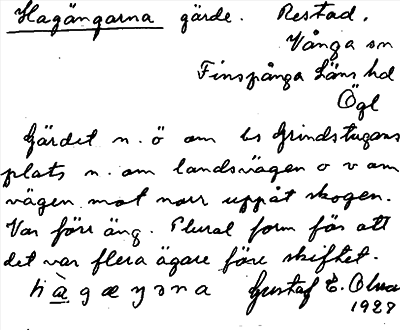 Hagängarna gärde. Restad.
Vånga sn
Finspånga läns hd
Ögl
Gärdet n. ö om bs Grindstugans
plats n. om landsvägen o v om
vägen mot norr uppåt skogen.
Var förr äng. Plural form för att
det var flera ägare före skiftet.
Gustaf E. Olsson
1928